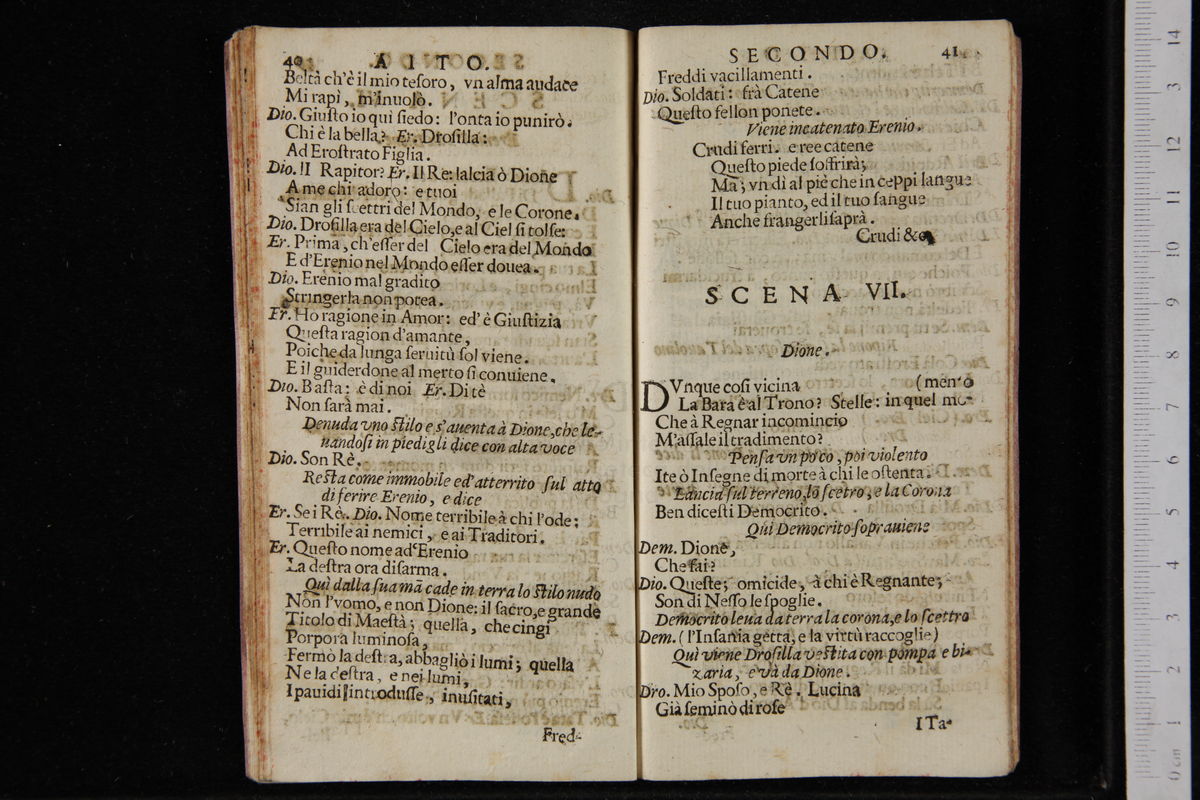 40 AITO.
Beltà ch'è il mio teſoro, vn alma audace
Mi rapì, m'inuolò.
Dio. Giuſto io qui ſiedo: l'onta io punirò.
Chi è la bella? Er. Droſilla:
Ad Eroſtrato Figlia.
Dio. Il Rapitor? Er. Il Re: laſcia ò Dione
A me chi adoro: e tuoi
Sian gli ſcettri del Mondo, e le Corone.
Dio. Droſilla era del Cielo, e al Ciel ſi tolſe:
Er. Prima, ch'eſſer del Cielo era del Mondo
E d'Erenio nel Mondo eſſer douea.
Dio. Erenio mal gradito
Stringerla non potea.
Er. Ho ragione in Amor: ed' è Giuſtizia
Queſta ragion d'amante,
Poiche da lunga ſeruitù ſol viene.
E il guiderdone al merto ſi conuiene.
Dio. Baſta: è di noi Er. Di tè
Non ſarà mai.
Denuda vno ſtilo e s'auenta à Dione, che le-
uandoſi in piedi gli dice con alta voce
Dio. Son Rè.
Reſta come immobile ed' atterrito ſul atto
di ferire Erenio, e dice
Er. Se i Rè. Dio. Nome terribile à chi l'ode:
Terribile ai nemici, e ai Traditori.
Er. Queſto nome ad Erenio
La deſtra ora diſarma.
Quì dalla ſua mã cade in terra lo ſtilo nudo
Non l'vomo, e non Dione: il ſacro, e grande
Titolo di Maeſtà; quella, che cingi
Porpora luminoſa,
Fermò la deſtra, abbagliò i lumi; quella
Ne la deſtra, e nei lumi,
I pauidi introduſſe, inuſitati,
Fred-
SECONDO. 41
Freddi vacillamenti.
Dio. Soldati: frà Catene
Queſto fellon ponete.
Viene incatenato Erenio.
Crudi ferri. e ree catene
Queſto piede ſoffrirà;
Ma; vn dì al piè che in ceppi langue
Il tuo pianto, ed il tuo ſangue
Anche frangerli ſaprà.
Crudi &c.
SCENA VII.
Dione.
DVnque coſi vicina (mento
La Bara è al Trono? Stelle: in quel mo-
Che à Regnar incomincio
M'aſſale il tradimento?
Penſa vn poco, poi violento
Ite ò Inſegne di morte à chi le oſtenta.
Lancia ſul terreno, lo ſcetro, e la Corona
Ben diceſti Democrito.
Quì Democrito ſoprauiene
Dem. Dione,
Che fai?
Dio. Queſte; omicide, à chi è Regnante;
Son di Neſſo le ſpoglie.
Democrito leua da terra la corona, e lo ſcettro
Dem. (l'Inſania getta, e la virtù raccoglie)
Quì viene Droſilla veſtita con pompa e bi-
zaria, e và da Dione.
Dro. Mio Spoſo, e Rè. Lucina
Già ſeminò di roſe
I Ta-